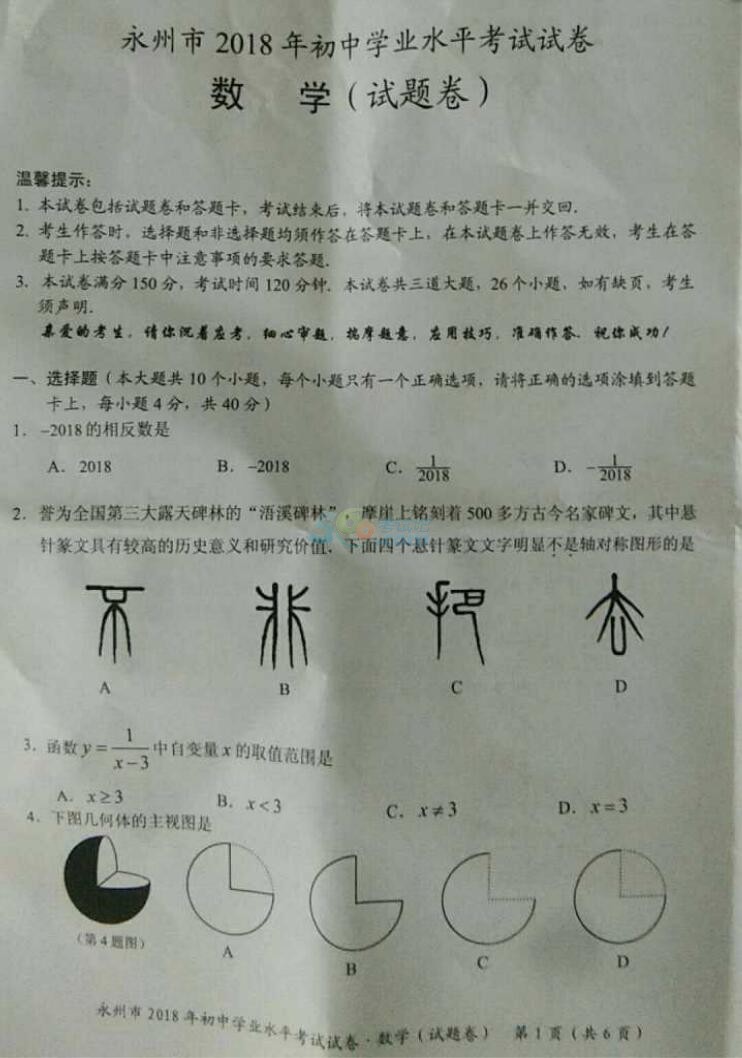 永州市 2018 年初中学业水平考试试卷
数 学（试题卷）
温馨提示：
1. 本试卷包括试题卷和答题卡，考试结束后，将本试题卷和答题卡一并交回.
2. 考生作答时，选择题和非选择题均须作答在答题卡上，在本试题卷上作答无效，考生在答
题卡上按答题卡中注意事项的要求答题.
3. 本试卷满分 150 分，考试时间 120 分钟. 本试卷共三道大题，26 个小题，如有缺页，考生
须声明.
亲爱的考生，请你沉着应考，细心审题，揣摩题意，应用技巧，准确作答. 祝你成功！
一、选择题（本大题共 10 个小题，每个小题只有一个正确选项，请将正确的选项涂填到答题
卡上，每小题 4 分，共 40 分）
1. -2018 的相反数是
A. 2018 B. -2018 C. 1/2018 D. -1/2018
2. 誉为全国第三大露天碑林的“浯溪碑林”，摩崖上铭刻着 500 多方古今名家碑文，其中悬
针篆文具有较高的历史意义和研究价值. 下面四个悬针篆文文字明显不是轴对称图形的是
A B C D
3. 函数 y = 1/(x-3) 中自变量 x 的取值范围是
A. x≥3 B. x<3 C. x≠3 D. x=3
4. 下图几何体的主视图是
（第 4 题图） A B C D
永州市 2018 年初中学业水平考试试卷·数学（试题卷） 第 1 页（共 6 页）